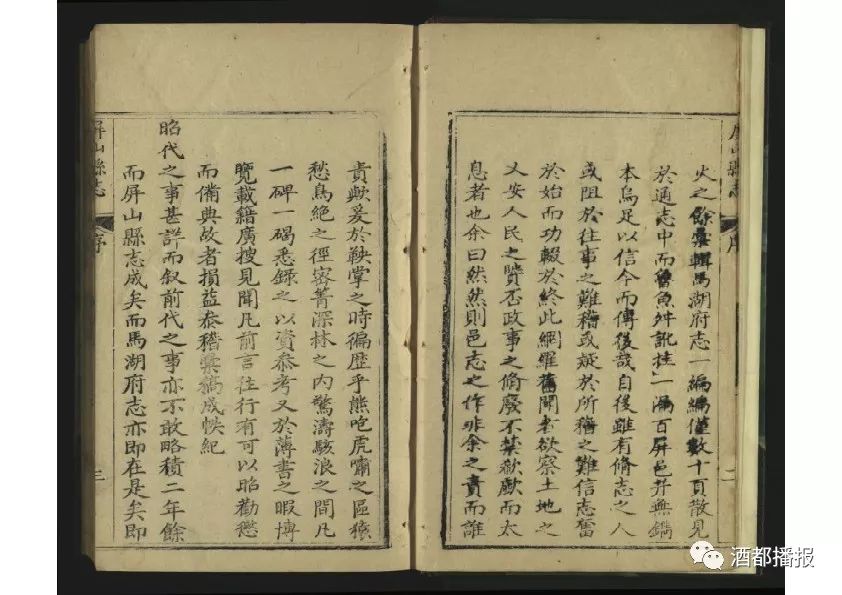 屏山縣志
序
二
火之餘彙輯馬湖府志一編編僅數十頁散見
於通志中而魯魚舛訛挂一漏百屏邑并無鐫
本烏足以信今而傳後哉自後雖有脩志之人
或阻於往事之難稽或疑於所稽之難信志奮
於始而功輟於終此網羅舊聞者欲察土地之
乂安人民之贊否政事之脩廢不禁欷歔而太
息者也余曰然然則邑志之作非余之責而誰
責歟爰於鞅掌之時徧歷乎熊咆虎嘯之區猿
愁鳥絕之徑密菁深林之內驚濤駭浪之間凡
一碑一碣悉錄之以資叅考又於薄書之暇博
覽載籍廣搜見聞凡前言往行有可以昭勸懲
而備典故者損益叅稽彙稿成帙紀
昭代之事甚詳而叙前代之事亦不敢略積二年餘
而屏山縣志成矣而馬湖府志亦即在是矣即
屏山縣志
序
三
酒都播报